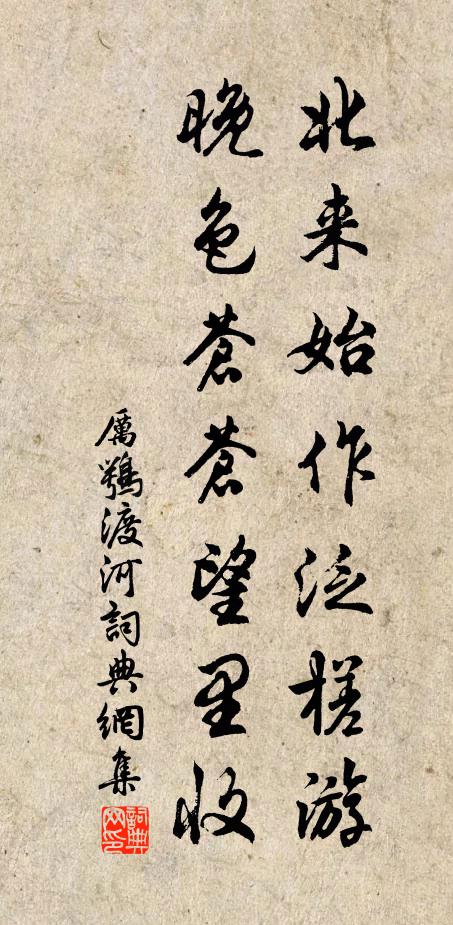 北来始作泛槎游
晚色苍苍望里收
厲鶚渡河詞典網集
詞典网印